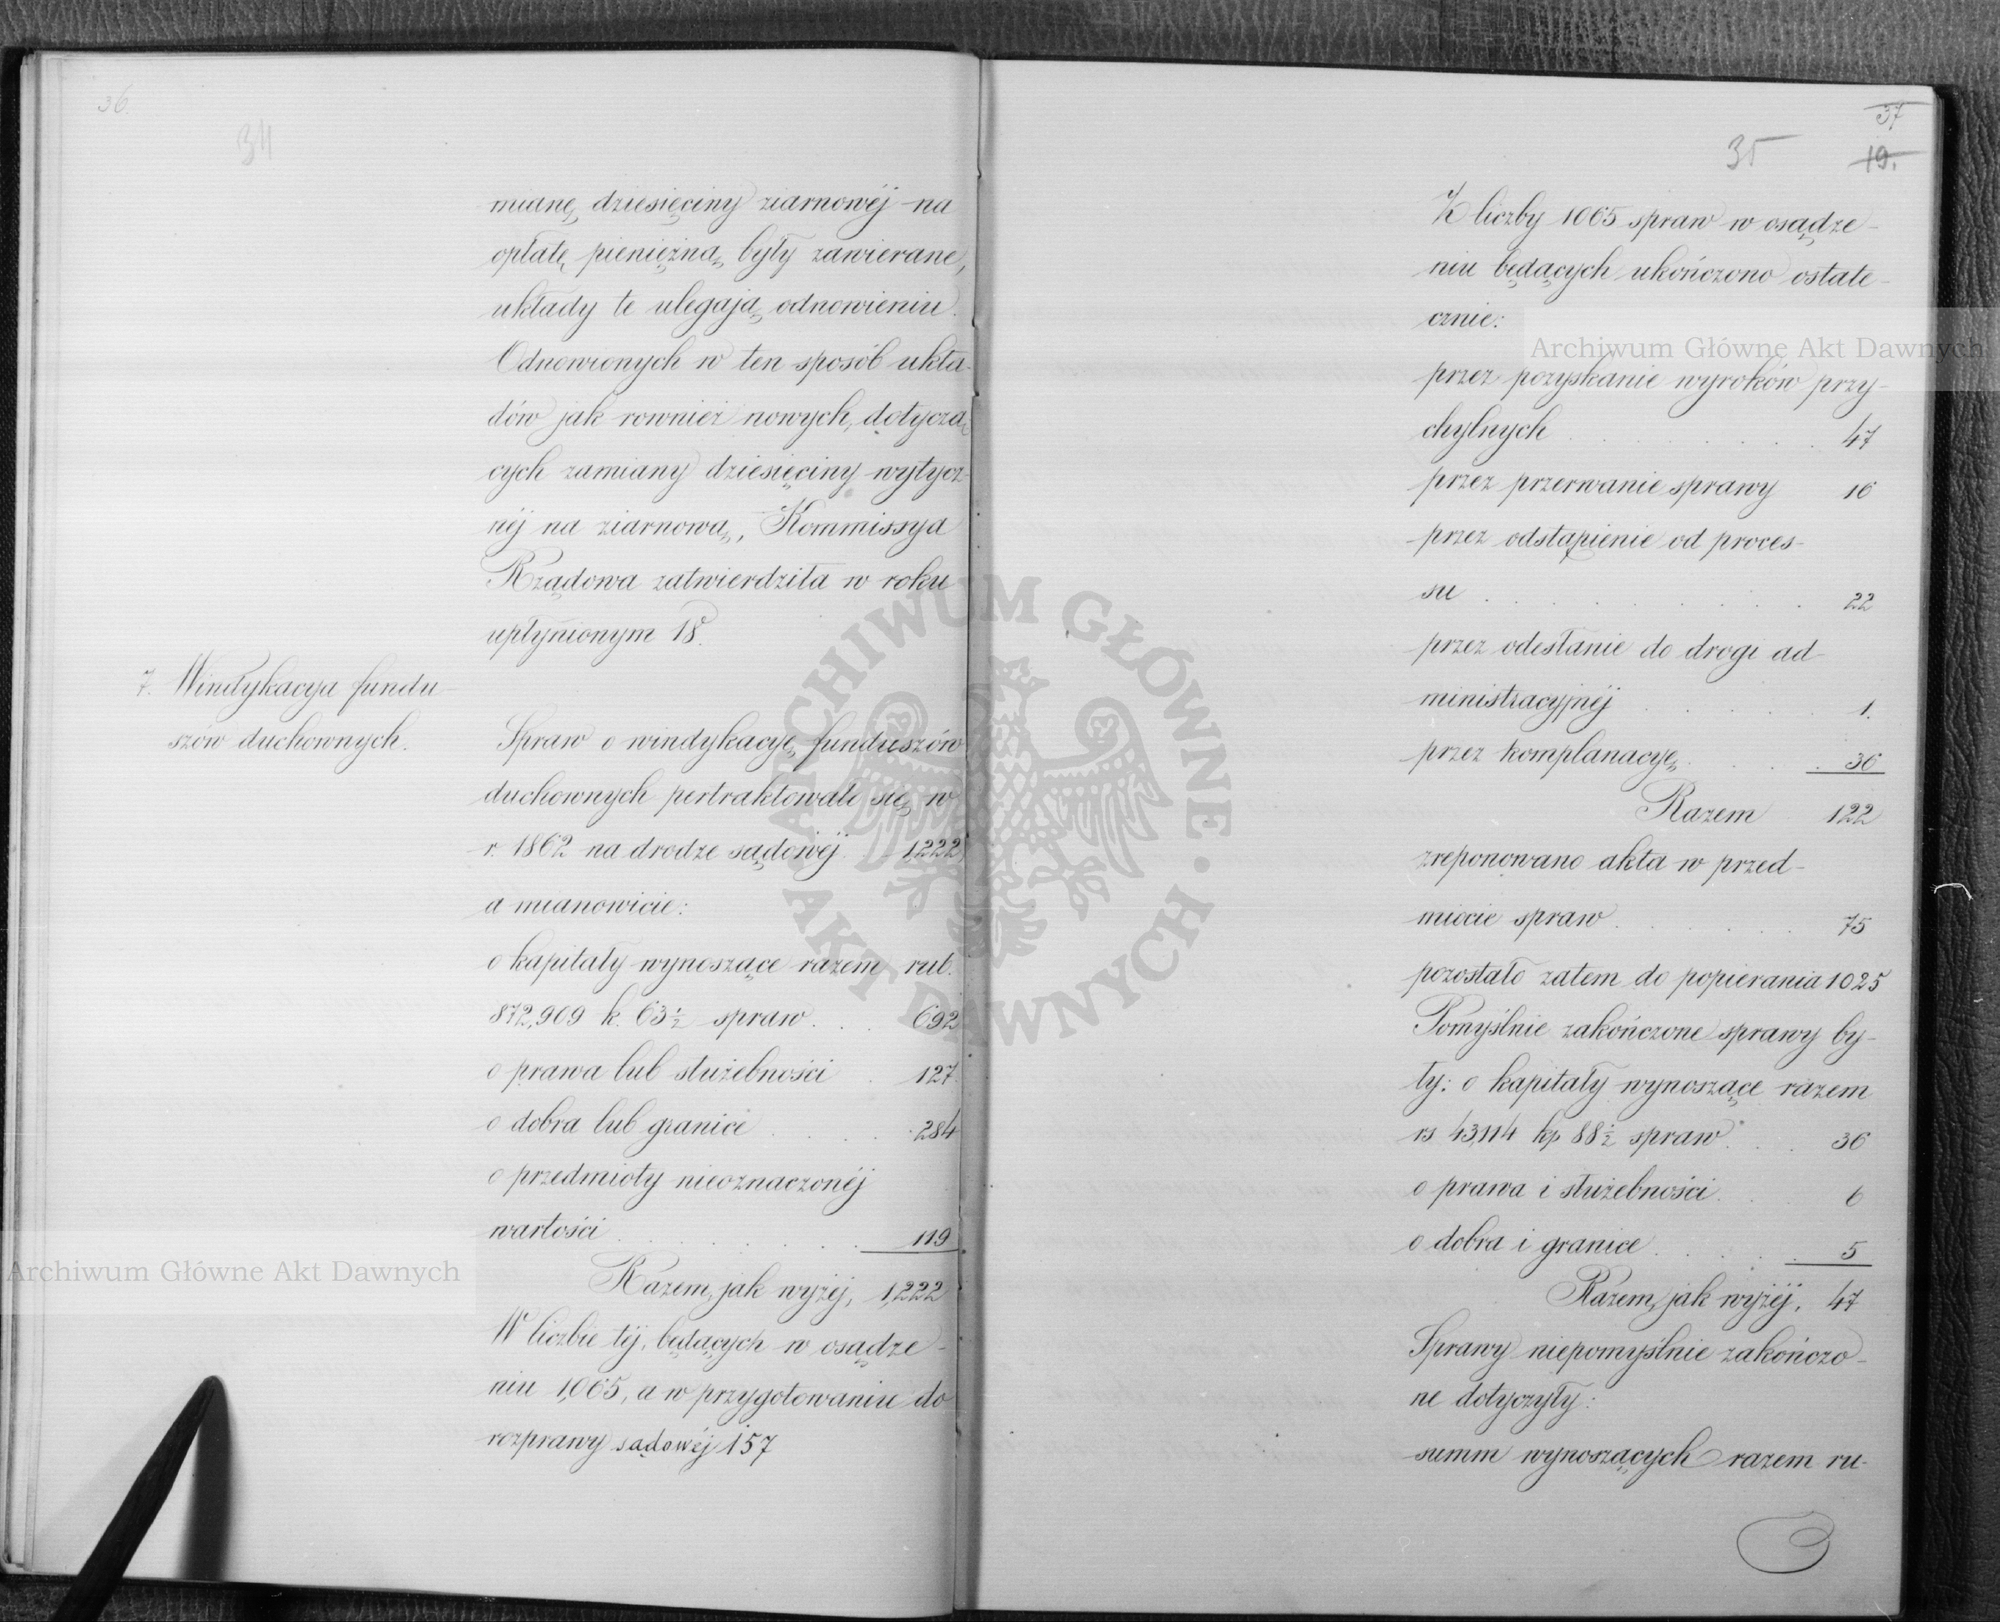 36.
34
mianę dziesięciny ziarnowéj na
opłatę pieniężną były zawierane,
układy te ulegają odnowieniu.
Odnowionych w ten sposób ukła-
dów jak rownież nowych, dotyczą-
cych zamiany dziesięciny wytycz-
néj na ziarnową, Kommissya
Rządowa zatwierdziła w roku
upłynionym 18.
7. Windykacya fundu-
szów duchownych.
Spraw o windykacyę funduszów
duchownych pertraktowało się w
r. 1862 na drodze sądowéj 1,222
a mianowicie:
o kapitały wynoszące razem rub.
872,909 k. 63½ spraw . . 692
o prawa lub służebności . 127
o dobra lub granice . . . 284
o przedmioty nieoznaczonéj
wartości . . . . . . 119
Razem, jak wyżéj, 1,222
W liczbie téj, będących w osądze-
niu 1,065, a w przygotowaniu do
rozprawy sądowéj 157
37
35
19.
Z liczby 1065 spraw w osądze-
niu będących ukończono ostate-
cznie:
przez pozyskanie wyroków przy-
chylnych . . . . . . . 47
przez przerwanie sprawy 16
przez odstąpienie od proces-
su . . . . . . . . . 22
przez odesłanie do drogi ad-
ministracyjnéj . . . . . 1.
przez komplanacyę . . . . 36
Razem 122
zreponowano akta w przed-
miocie spraw . . . . . . 75
pozostało zatem do popierania 1025
Pomyślnie zakończone sprawy by-
ły: o kapitały wynoszące razem
rs 43,114 kp. 88½ spraw . . . 36
o prawa i służebności . . 6
o dobra i granice . . . . . 5
Razem, jak wyżéj, 47
Sprawy niepomyślnie zakończo-
ne dotyczyły:
summ wynoszących razem ru-
Archiwum Główne Akt Dawnych
Archiwum Główne Akt Dawnych
ARCHIWUM GŁÓWNE · AKT DAWNYCH ·